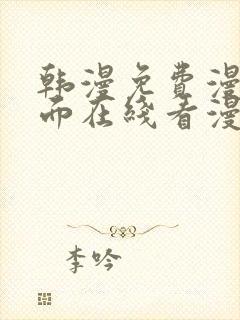 韩漫免费漫
而在线看漫
李吟